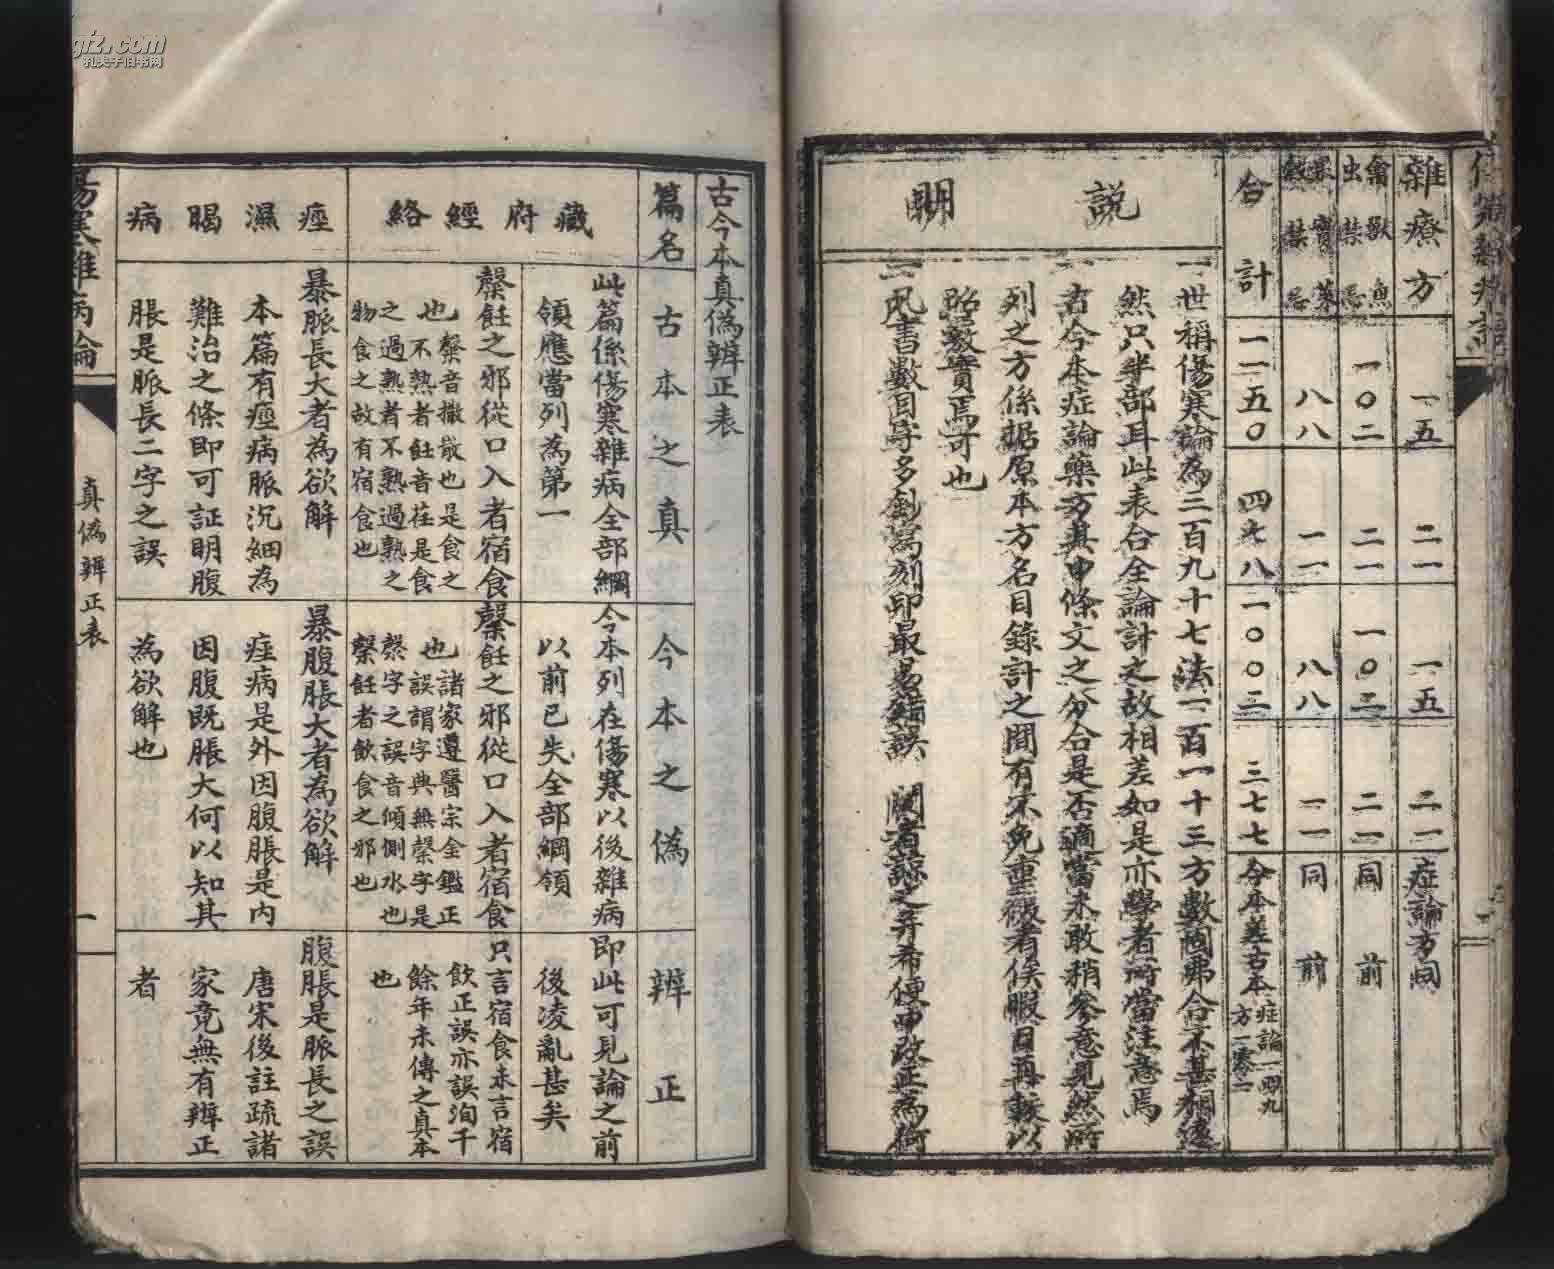 雜療方
一五
二一
一五
二一
症論方同
禽獸魚
虫禁忌
一〇二
二一
一〇二
二一
同前
菓實菜
穀禁忌
八八
一一
八八
一一
同前
合計
一一五〇
四九八
一〇〇三
三七七
今本差古本
說明
一世稱傷寒論為三百九十七法一百一十三方數問弗合不甚相遠
然只半部耳此表合全論計之故相差如是亦學者所當注意焉
古今本症論藥方其中條文之分合是否適當未敢稍參意見然所
列之方係據原本方名目錄計之間有不免重複者俟暇日再較以
昭覈實焉可也
一凡書數目字多鈔寫刻印最易錯誤 閱者諒之并希便中改正為荷
古今本真偽辨正表
篇名
古本之真
今本之偽
辨正
藏府經絡
此篇係傷寒雜病全部綱
領應當列為第一
今本列在傷寒以後雜病
以前已失全部綱領
即此可見論之前
後凌亂甚矣
䅽飪之邪從口入者宿食
也䅽音撒散也是食之
不熟者飪音荏是食
之過熟者不熟過熟之
物食之故有宿食也
䅽飪之邪從口入者宿食
也諸家遵醫宗金鑑正
誤謂字典無䅽字是
䅽字之誤音傾側水也
䅽飪者飲食之邪也
只言宿食未言宿
飲正誤亦誤洵千
餘年未傳之真本
也
痙濕暍病
暴脈長大者為欲解
本篇有痙病脈沉細為
難治之條即可証明腹
脹是脈長二字之誤
暴腹脹大者為欲解
痙病是外因腹脹是內
因腹既脹大何以知其
為欲解也
腹脹是脈長之誤
唐宋後註疏諸
家竟無有辨正
者
傷寒雜病論
真偽辨正表
一
孔夫子旧书网